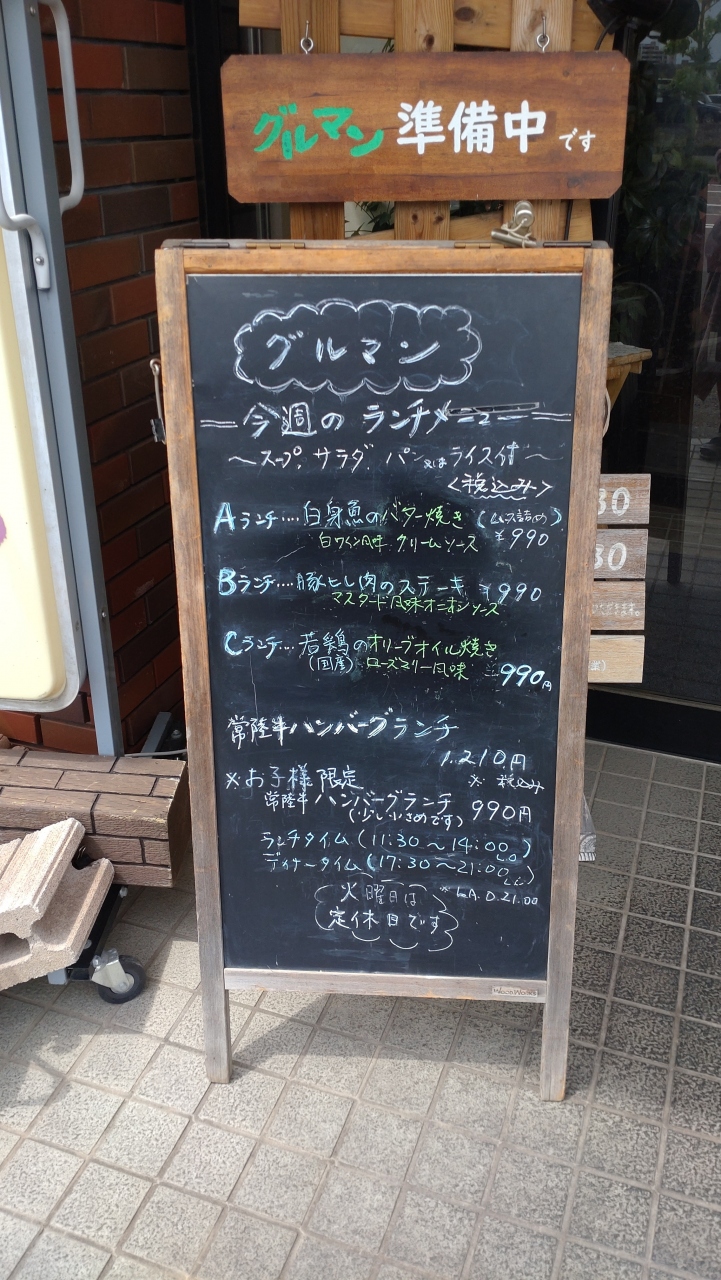 グルマン 準備中 です
グルマン
今週の ランチメニュー
～スープ、サラダ、パン又はライス付～
<税込み>
Aランチ…白身魚のバター焼き(ムース詰め)
白ワイン風味 クリームソース ¥990
Bランチ…豚ヒレ肉のステーキ ¥990
マスタード風味オニオンソース
Cランチ…若鶏のオリーブオイル焼き
(国産) ローズマリー風味 990円
常陸牛ハンバーグランチ
1.210円
※お子様限定 ※税込み
常陸牛ハンバーグランチ 990円
(少し小さめです)
ランチタイム(11:30～14:00 L.O)
ディナータイム(17:30～21:00)
火曜日は
定休日です
30
30
WOODWOOD